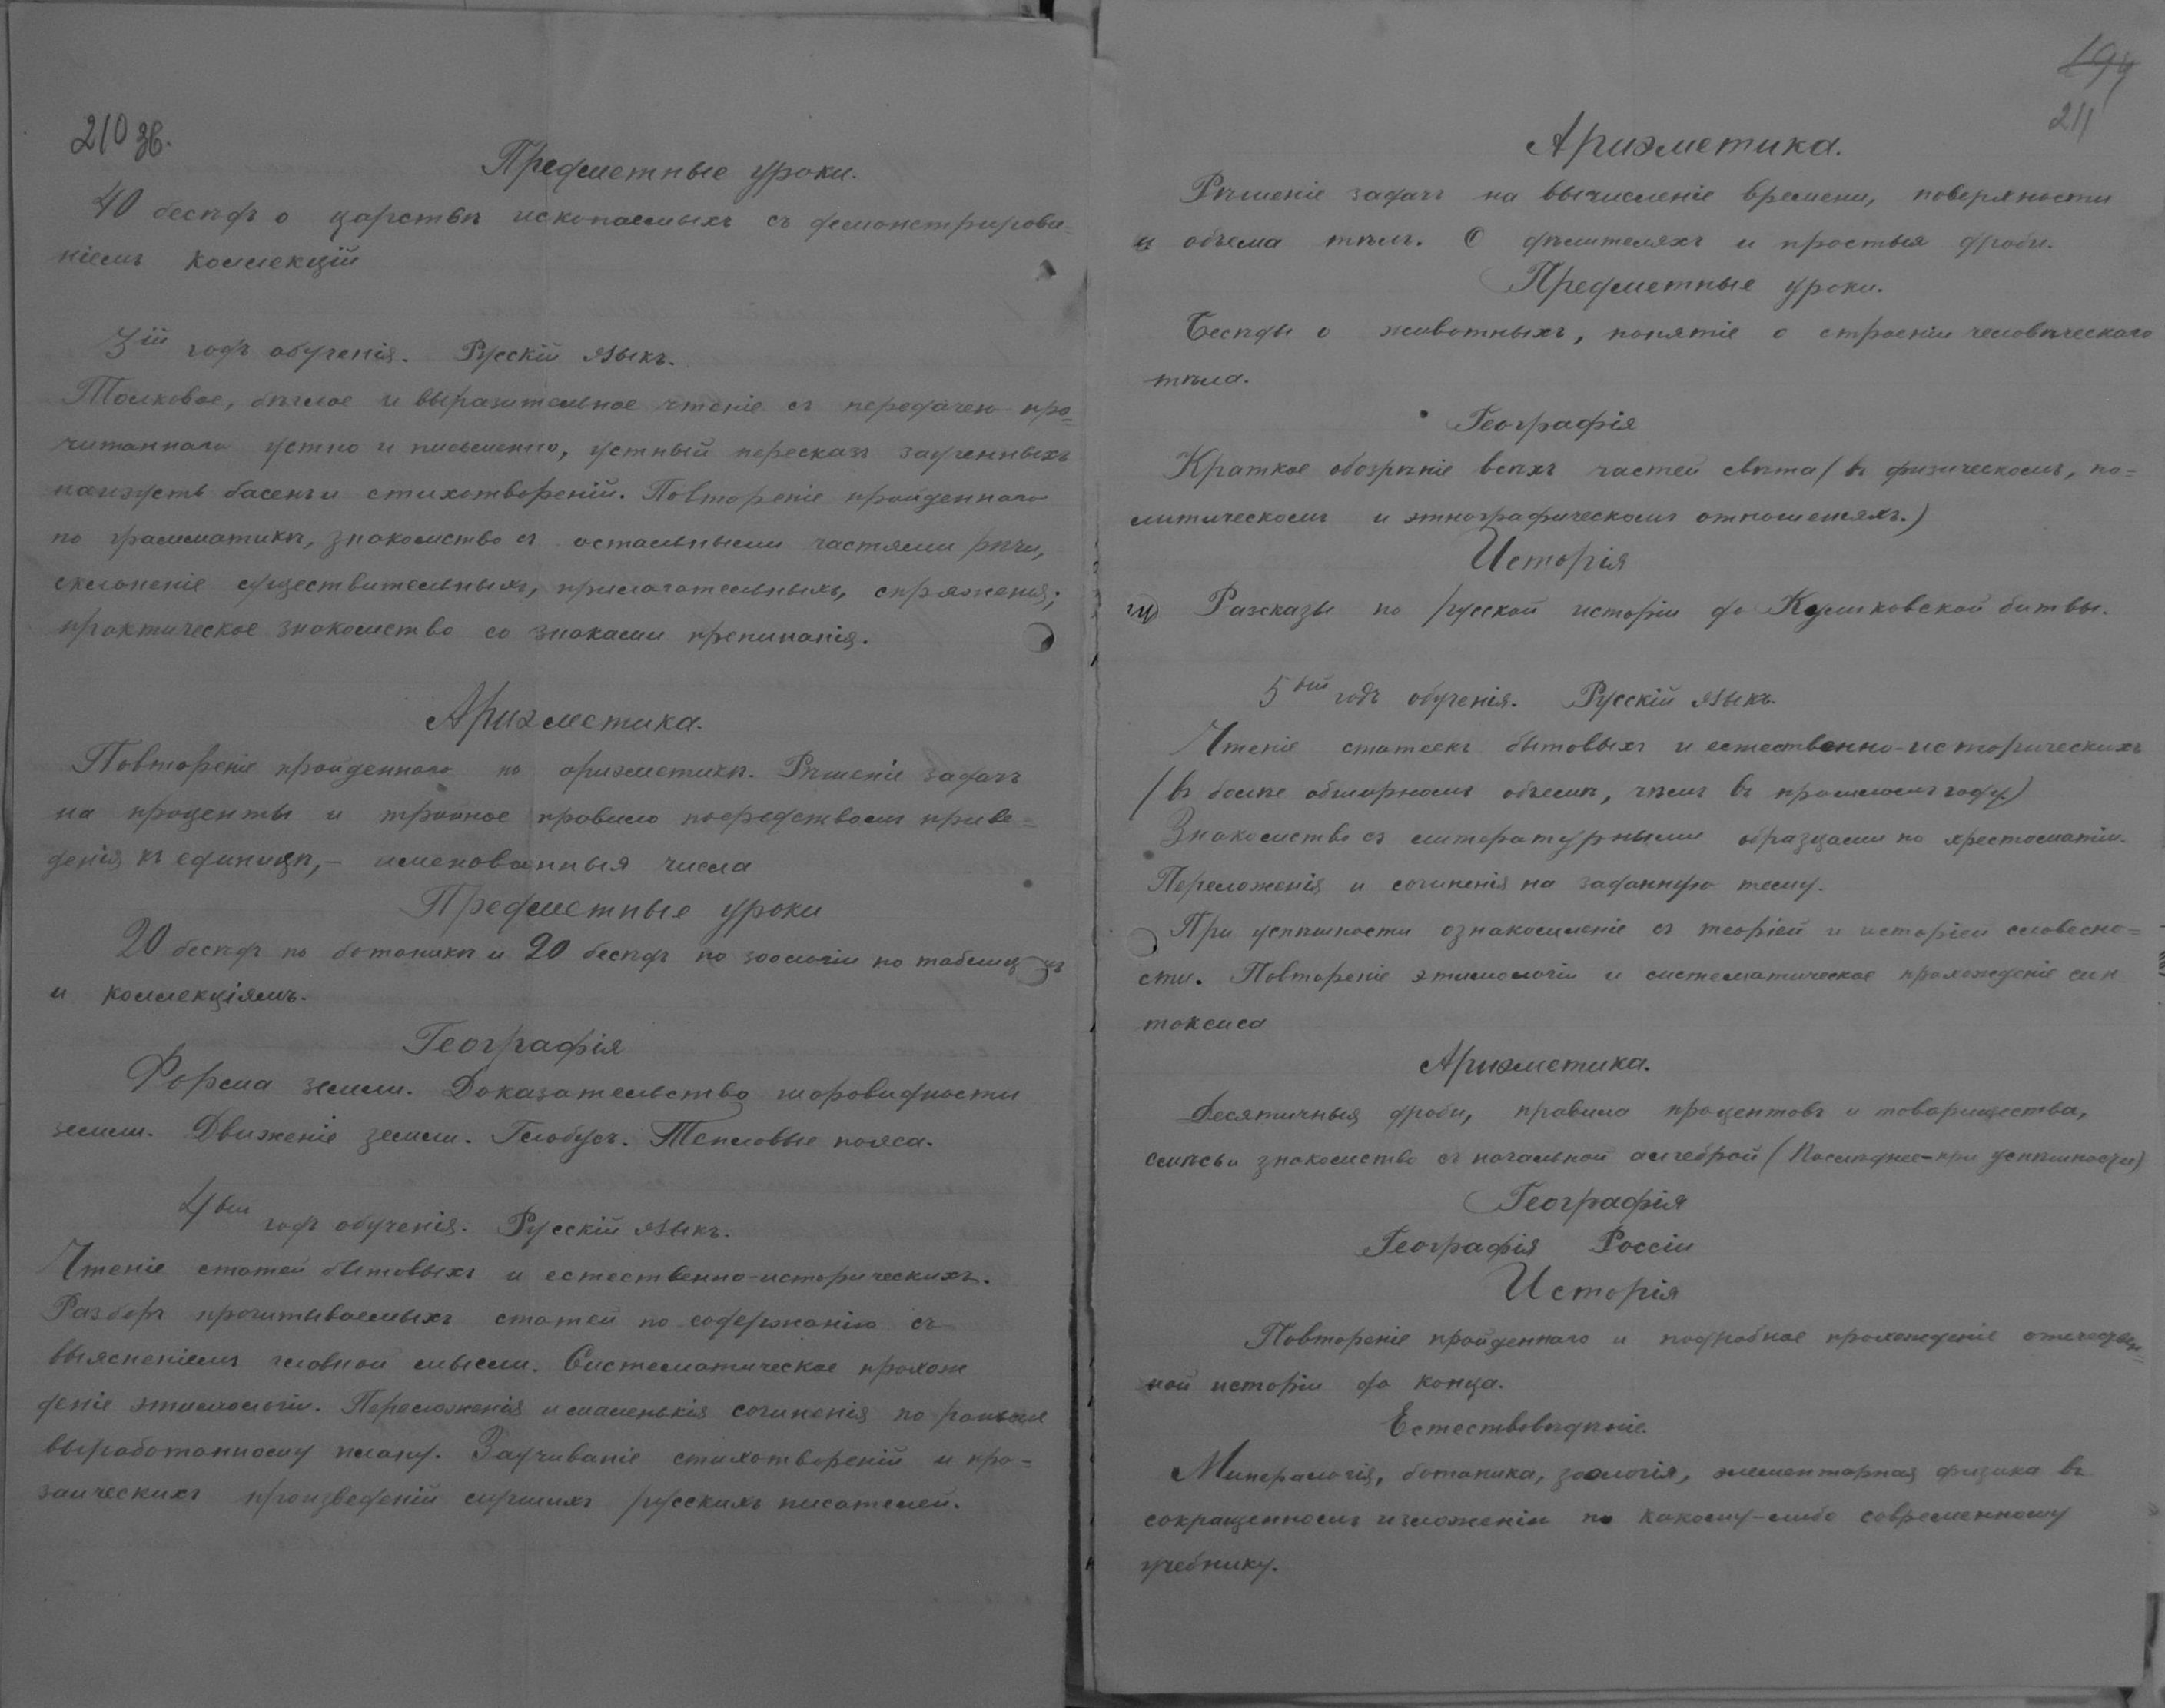 210 зв.
Предметные уроки.
40 бесѣдъ о царствѣ ископаемыхъ съ демонстрирова=
ніемъ коллекцій
3ій годъ обученія. Русскій языкъ.
Толковое, бѣглое и выразительное чтеніе съ передачею про=
читаннаго устно и письменно, устный пересказъ заученныхъ
наизусть басенъ и стихотвореній. Повтореніе пройденнаго
по грамматикѣ, знакомство съ остальными частями рѣчи,
склоненіе существительныхъ, прилагательныхъ, спряженія;
практическое знакомство со знаками препинанія.
Ариѳметика.
Повтореніе пройденнаго по ариѳметикѣ. Рѣшеніе задачъ
на проценты и тройное правило посредствомъ приве=
денія къ единицѣ, - именованныя числа
Предметные уроки
20 бесѣдъ по ботаникѣ и 20 бесѣдъ по зоологіи по таблицамъ
и коллекціямъ.
Географія
Форма земли. Доказательство шаровидности
земли. Движеніе земли. Глобусъ. Тепловые пояса.
4вый годъ обученія. Русскій языкъ.
Чтеніе статей бытовыхъ и естественно-историческихъ.
Разборъ прочитываемыхъ статей по содержанію съ
выясненіемъ главной мысли. Систематическое прохож
деніе этимологіи. Переложенія и маленькія сочиненія по раньше
выработанному плану. Заучиваніе стихотвореній и про=
заическихъ произведеній лучшихъ русскихъ писателей.
194
211
Ариѳметика.
Рѣшеніе задачъ на вычисленіе времени, поверхности
и объема тѣлъ. О дѣлителяхъ и простыя дроби.
Предметные уроки.
Бесѣды о животныхъ, понятіе о строеніи человѣческаго
тѣла.
Географія
Краткое обозрѣніе всѣхъ частей свѣта (въ физическомъ, по=
литическомъ и этнографическомъ отношеніяхъ.)
Исторія
Разсказы по русской исторіи до Куликовской битвы.
5ый годъ обученія. Русскій языкъ.
Чтеніе статеекъ бытовыхъ и естественно-историческихъ
(въ болѣе обширномъ объемѣ, чѣмъ въ прошломъ году.)
Знакомство съ литературными образцами по хрестоматіи.
Переложенія и сочиненія на заданную тему.
При успѣшности ознакомленіе съ теоріей и исторіей словесно=
сти. Повтореніе этимологіи и систематическое прохожденіе син
таксиса
Ариѳметика.
Десятичныя дроби, правила процентовъ и товарищества,
смѣсь и знакомство съ начальной алгеброй (Послѣднее-при успѣшности)
Географія
Географія Россіи
Исторія
Повтореніе пройденнаго и подробное прохожденіе отечествен=
ной исторіи до конца.
Естествовѣдѣніе.
Минералогія, ботаника, зоологія, элементарная физика въ
сокращенномъ изложеніи по какому-либо современному
учебнику.